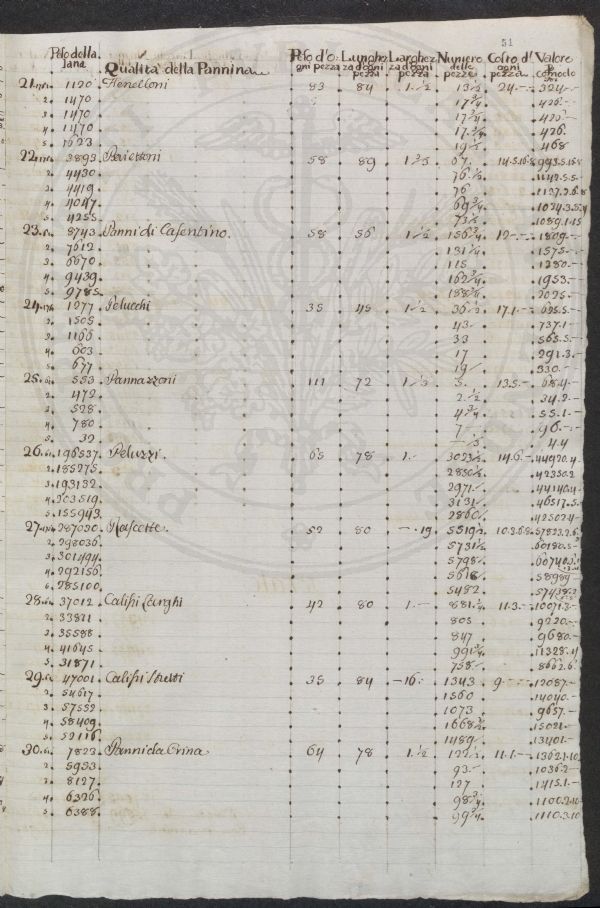 51
Peso della lana Qualità della Pannina Peso d'ogni pezza Lunghezza d'ogni pezza Larghezza d'ogni pezza Numero delle pezze Costo d'ogni pezza Valore
21. 1120 83 84 1.½ 13½ 24.- 324.-
2. 1470 17¾ 426.
3. 1470 17¾ 426.
4. 1470 17.¾ 426.
5. 1623 19½ 468
22. 3893 58 89 67. 
2. 4430 76.½
3. 4419 76 1127.2.6.8
4. 4047 69¾ 1034.3.5.4
5. 4255 73½ 1089.1.15
23. 8743 Panni di Casentino. 58 56 1.½ 156¾ 12.- 1809.-
2. 7612 131¼ 1575.-
3. 6670 115 1280.-
4. 9439 162¾ 1953.-
5. 9785 168¾ 2025.-
24. 1277 Pelucchi 35 45 1.½ 36½ 17.1.- 635.5.-
2. 1505 43. 737.1.-
3. 1166 33 565.5.-
4. 603 17 291.3.-
5. 677 19 330.-
25. 553 Pannazzoni 111 72 5. 13.5.- 68.4.-
2. 472 2.½ 34.2.-
3. 528 4¾ 55.1.-
4. 780 7 96.-
5. 32 4.4
26. 196537. Peluzzi. 65 78 1.- 3023½ 14.6.- 44920.4
2. 185275 2850½ 42350.2
3. 193132 2971 44140.4
4. 203519 3131 46517.5
5. 155943 2860 42502.4
27. 287020 Rascette 52 80 -.19 5519½ 10.2.6.8 57823.2.6
2. 298036 5731½ 60180.5
3. 301494 5798
4. 292156 5618 58989
5. 285100 5482
28. 37012 Califfi Larghi 42 80 1.- 881.¼ 11.3.- 10071.3
2. 33821 805 9220.-
3. 35588 847 9680.-
4. 41645 991¼ 11328.4
5. 31871 758 8662.6
29. 47001 Califfi Stretti 35 84 -16 1343 9.- 12087.-
2. 54617 1560 14040.-
3. 57552 1073 9657.-
4. 58409 1668¾ 15021.-
5. 52116 1489 13401.-
30. 7823 Panni da Crina 64 78 1.½ 122½ 11.1.- 1362.1.10
2. 5953 93.- 1036.2
3. 8127 127 1415.1.-
4. 6326 98¾ 1100.2.10
5. 6388 99¾ 1110.3.10